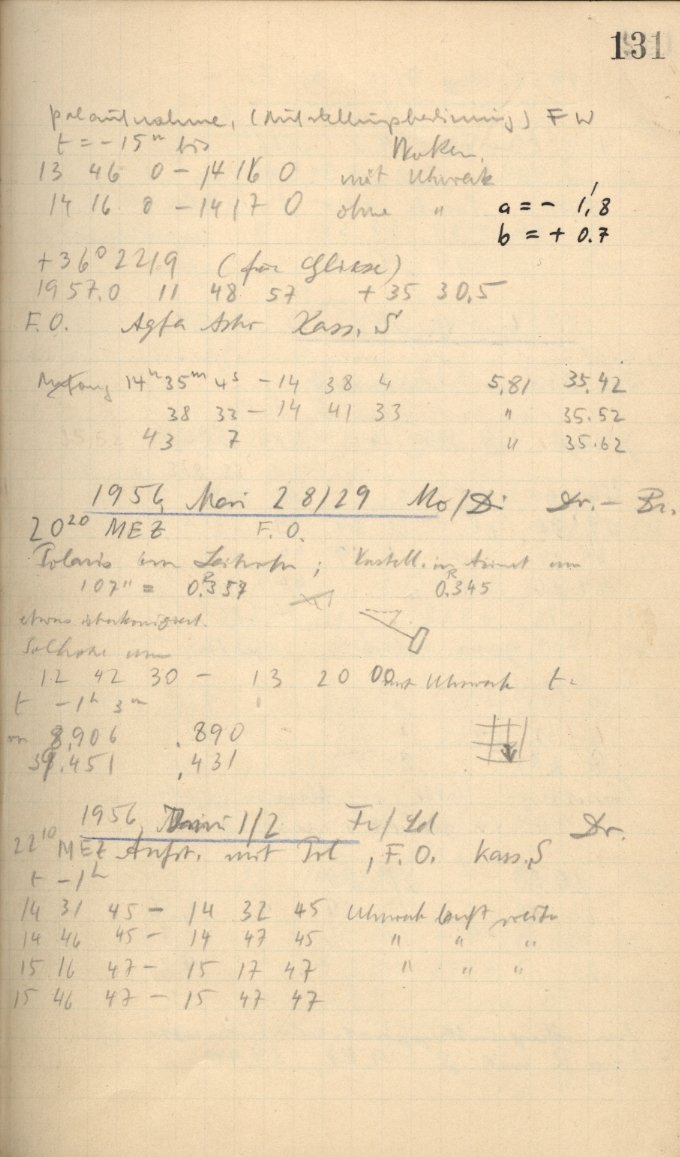 131
Polaufnahme, F W
t = - 15ᵐ bis Wolken.
13 46 0 - 14 16 0 mit Uhrwerk
14 16 0 - 14 17 0 ohne "
a = - 1,8
b = + 0.7
+36° 2219 (für Gliese)
1957.0 11 48 57 +35 30.5
F.O. Agfa Astr Kass. S
14ʰ 35ᵐ 4ˢ - 14 38 4 5,81 35.42
38 33 - 14 41 33 " 35.52
43 7 " 35.62
1956 Mai 28/29 Mo/Di Dr. - Br.
20²⁰ MEZ F.O.
Polaris im Leitrohr; Verstell. in Azimut um
107" = 0.357 0.345
etwas überkorrigiert.
12 42 30 - 13 20 00 mit Uhrwerk t =
t - 1ʰ 3ᵐ
8,906 .890
39.451 ,431
1956 Juni 1/2 Fr/Sd Dr.
22¹⁰ MEZ Aufn. mit Pol, F.O. Kass. S
t - 1ʰ
14 31 45 - 14 32 45 Uhrwerk läuft weiter
14 46 45 - 14 47 45 " " "
15 16 47 - 15 17 47 " " "
15 46 47 - 15 47 47